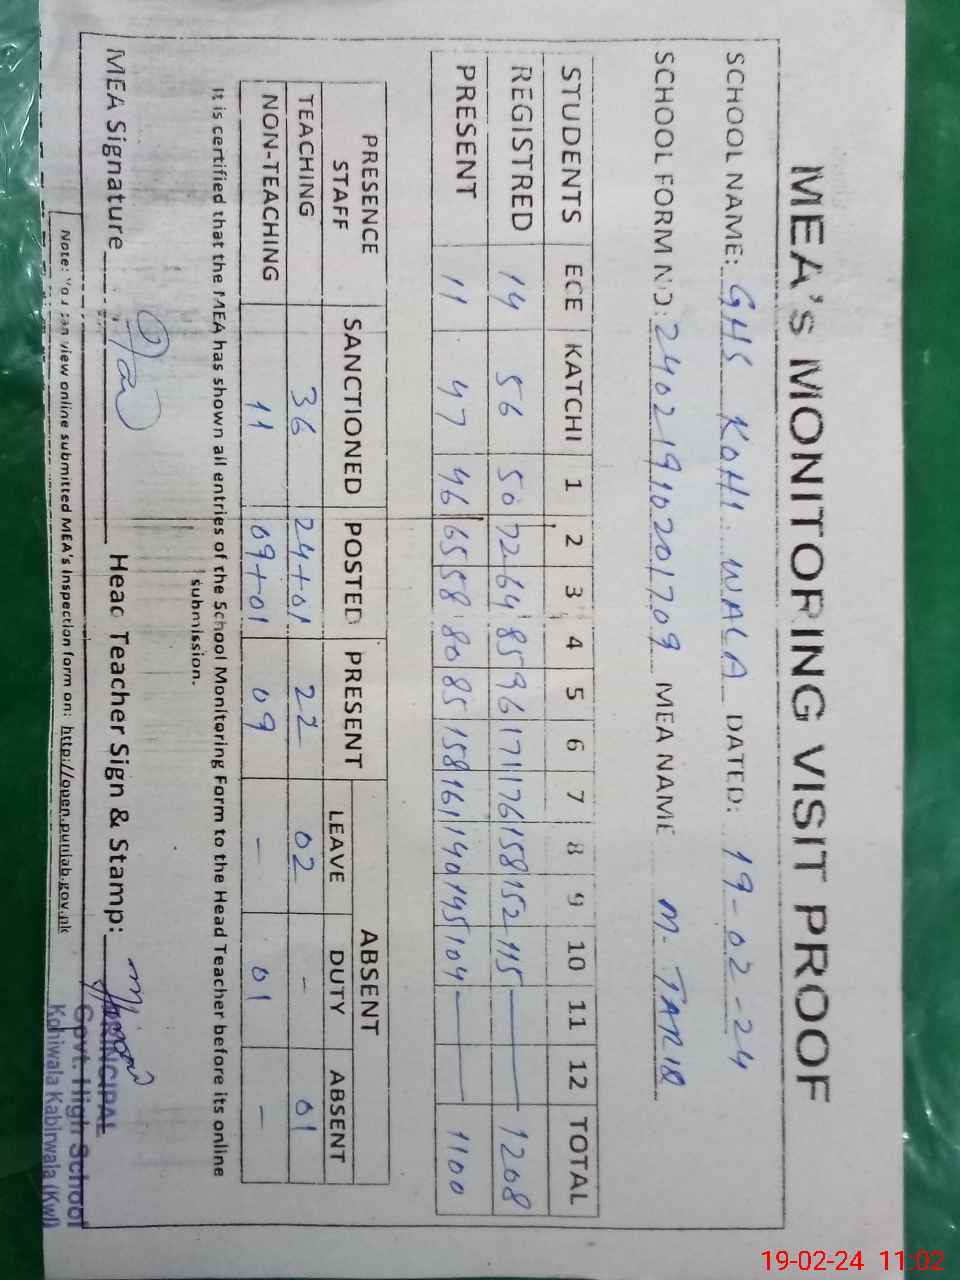 MEA's MONITORING VISIT PROOF
SCHOOL NAME: GHS KOHI WALA DATED: 19-02-24
SCHOOL FORM NO: 24021910201709 MEA NAME M. TARIQ
STUDENTS ECE KATCHI 1 2 3 4 5 6 7 8 9 10 11 12 TOTAL
REGISTRED 14 56 50 72 64 85 96 171 176 158 152 115 — 1208
PRESENT 11 47 46 65 58 80 85 158 161 140 145 104 — 1100
PRESENCE STAFF SANCTIONED POSTED PRESENT ABSENT
LEAVE DUTY ABSENT
TEACHING 36 24+01 22 02 - 01
NON-TEACHING 11 09+01 09 - 01 -
It is certified that the MEA has shown all entries of the School Monitoring Form to the Head Teacher before its online
submission.
MEA Signature Head Teacher Sign & Stamp:
PRINCIPAL
Govt. High School
Kohiwala Kabirwala (Kwl)
Note: You can view online submitted MEA's inspection form on: http://open.punjab.gov.pk
19-02-24 11:02